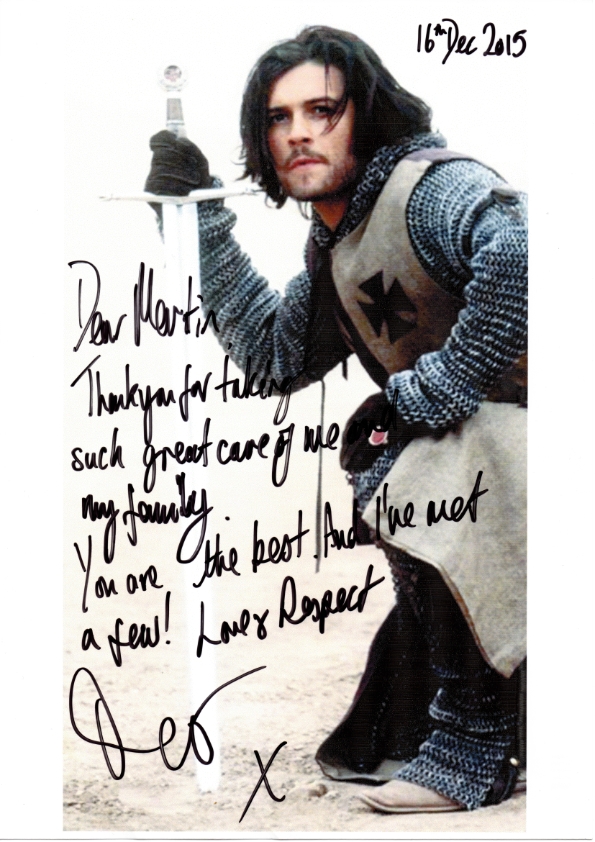 16th Dec 2015
Dear Martin,
Thankyou for taking
such great care of me and
my family.
You are the best. And I've met
a few! Love & Respect
X